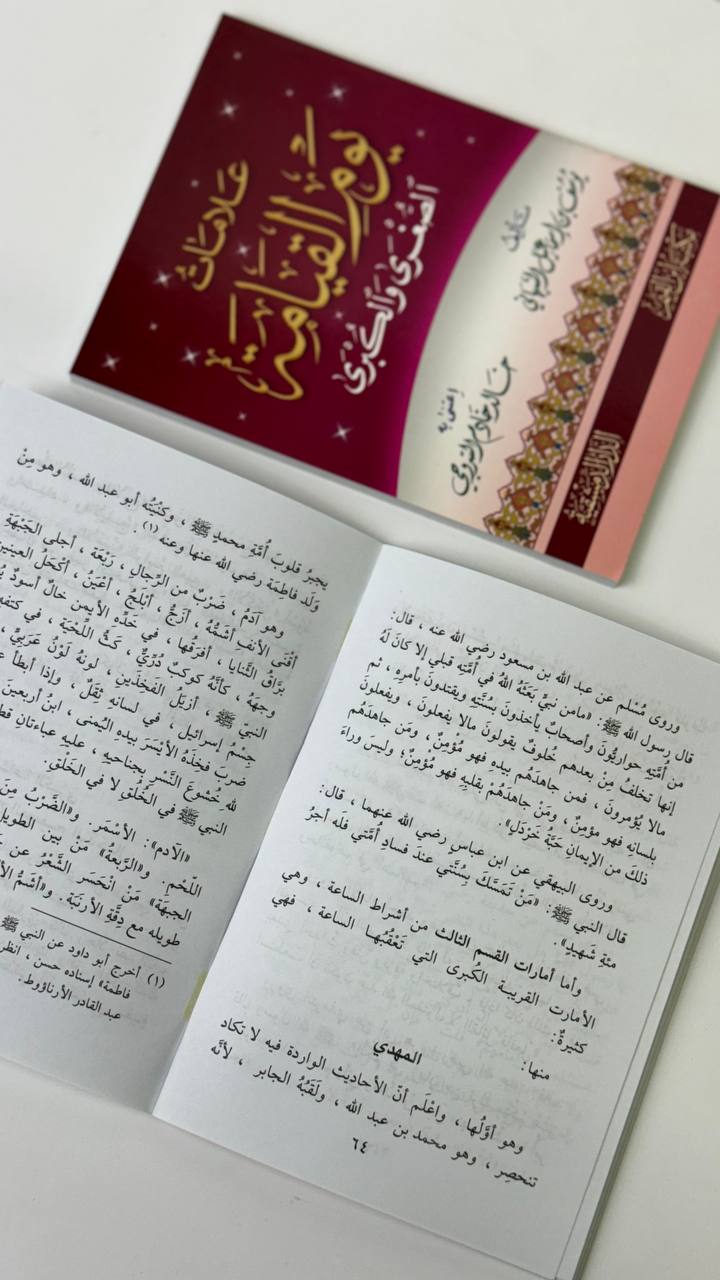 علامات
يوم القيامة
الصغرى والكبرى
تأليف
اعتنى به
وروى مُسْلم عن عبد الله بن مسعود رضي الله عنه ، قال:
قال رسول الله ﷺ: «مامن نبيٍّ بَعَثَهُ اللهُ في أُمَّتِهِ قبلي إلا كانَ لَهُ
من أُمَّتِهِ حواريُّونَ وأصحابٌ يأخذونَ بسُنَّتِهِ ويقتدونَ بأمرِهِ ، ثم
إنها تخلفُ مِنْ بعدهم خُلوفٌ يقولونَ مالا يفعلونَ ، ويفعلونَ
مالا يُؤمرونَ ، فمن جاهدَهُم بيدِهِ فهو مُؤمِنٌ ، ومَن جاهدَهُم
بلسانِهِ فهو مؤمِنٌ ، ومَنْ جاهدَهُمْ بقلبِهِ فهو مُؤمِنٌ؛ وليسَ وراءَ
ذلكَ من الإيمانِ حَبَّةُ خَرْدَلٍ».
وروى البيهقي عن ابن عباس رضي الله عنهما ، قال:
قال النبي ﷺ: «مَنْ تَمَسَّكَ بِسُنَّتي عندَ فسادِ أُمَّتي فلَه أجرُ
مئةِ شَهيدٍ».
وأما أمارات القسم الثالث من أشراط الساعة ، وهي
الأمارت القريبة الكُبرى التي تَعْقُبُها الساعة ، فهي
كثيرةٌ:
منها:
المهدي
وهو أوَّلُها ، واعْلَم أنّ الأحاديث الواردة فيه لا تكاد
تنحصِر ، وهو محمد بن عبد الله ، ولَقَبُهُ الجابر ، لأنَّه
٦٤
يجبرُ قلوبَ أُمَّةِ محمدٍ ﷺ ، وكنيَتُه أبو عبد الله ، وهو مِنْ
وَلَد فاطِمَة رضي الله عنها وعنه (١) .
وهو آدَمُ ، ضَرْبٌ من الرِّجالِ ، رَبْعَة ، أجلى الجَبْهَةِ
أقْنَى الأنفِ أشَمُّهُ ، أزَجُّ ، أبْلَجُ ، أعْيَنُ ، أكْحَلُ العينين
برَّاقُ الثَّنايا ، أفرَقُها ، في خَدِّهِ الأيمن خالٌ أسودُ
وجهَهُ ، كأنَّه كوكبٌ دُرِّيٌّ ، كَثُّ اللِّحْيَةِ ، في كتفِهِ
النبيّ ﷺ ، أزيَلُ الفَخِذَينِ ، لونهُ لَوْنٌ عَرَبيٌّ ،
جسْمُ إسرائيل ، في لسانِهِ ثِقَلٌ ، وإذا أبطأ
ضربَ فخِذَهُ الأيْسَرَ بيدِهِ اليُمنى ، ابنُ أربعينَ
لله خُشوعَ النَّسْرِ بجناحيهِ ، عليهِ عباءتانِ
النبيّ ﷺ في الخُلُقِ لا في الخَلْقِ.
«الآدم»: الأسْمَر. و«الضَّرْبُ مِنَ
اللَّحْم. و«الرَّبعةُ» مَنْ بين الطويلِ
الجبهة» مَنْ انْحَسَر الشَّعْرُ عن
طويله مع دِقَّةِ الأرنَبَة. و«أشَمُّ
(١) أخرج أبو داود عن النبي ﷺ
فاطمة» إسناده حسن ، انظر
عبد القادر الأرناؤوط.